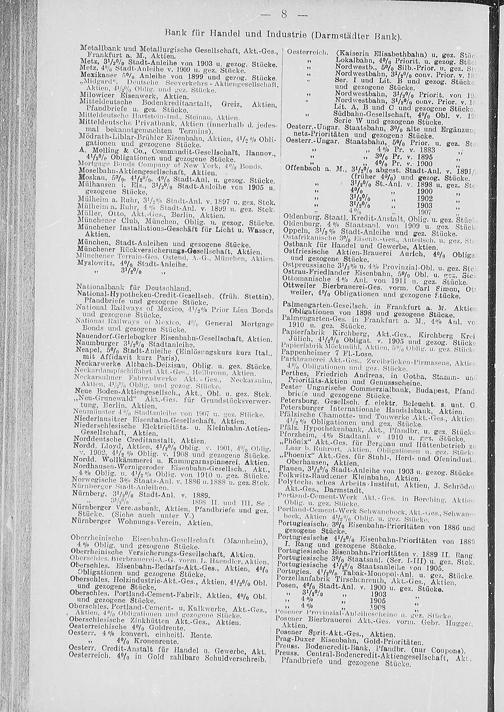 — 8 —
Bank für Handel und Industrie (Darmstädter Bank).
Metallbank und Metallurgische Gesellschaft, Akt.-Ges.,
Frankfurt a. M., Aktien.
Metz, 3½% Stadt-Anleihe von 1903 u. gez. Stücke.
Metz, 4% Stadt-Anleihe v. 1909 u. gez. Stücke.
Mexikaner 5% Anleihe von 1899 und gezog. Stücke.
„Midgard“, Deutsche Seeverkehrs-Aktiengesellschaft,
Aktien, Oblig. und gez. Stücke.
Milowicer Eisenwerk, Aktien.
Mitteldeutsche Bodenkreditanstalt, Greiz, Aktien,
Pfandbriefe u. gez. Stücke.
Mitteldeutsche Hartstein-Ind., Steinau, Aktien.
Mitteldeutsche Privatbank, Aktien (innerhalb d. jedes-
mal bekanntgemachten Termins).
Mödrath-Liblar-Brühler Eisenbahn, Aktien, 4½% Obli-
gationen und gezogene Stücke.
A. Molling & Co., Commandit-Gesellsch., Hannov.,
4½% Obligationen und gezogene Stücke.
Mortgage Bonds Company of New York, 4% Bonds.
Moselbahn-Aktiengesellschaft, Aktien.
Moskau, 5% Stadt-Anl. u. gezog. Stücke.
Mülhausen i. Els., 3½% Stadt-Anleihe von 1905 u.
gezogene Stücke.
Mülheim a. Ruhr, 3½% Stadt-Anl. v. 1897 u. gez. Stck.
Mülheim a. Ruhr, 4% Stadt-Anl. v. 1899 u. gez. Stck.
Müller, Otto, Akt.-Ges., Berlin, Aktien.
Münchener Club, München, Oblig. u. gezog. Stücke.
Münchener Installations-Geschäft für Licht u. Wasser,
Aktien.
München, Stadtanleihen und gezogene Stücke.
Münchener Rückversicherungs-Gesellschaft, Aktien.
Münchener Terrain-Ges. Ostend, A.-G., München, Aktien.
Myslowitz, 4% Stadt-Anleihe.
„ 3½% „
Nationalbank für Deutschland.
National-Hypotheken-Credit-Gesellsch. (früh. Stettin),
Pfandbriefe und gezogene Stücke.
National Railways of Mexico, 4½% Prior Lien Bonds
und gezogene Stücke.
National Railways of Mexico, 4% General Mortgage
Bonds und gezogene Stücke.
Nauendorf-Gerlebogker Eisenbahn-Gesellschaft, Aktien.
Naumburger 3½% Stadtanleihe.
Neapel, 5% Stadt-Anleihe (Einlösungskurs kurz Ital.,
mit Affidavit kurz Paris).
Neckarwerke Altbach-Deizisau, Oblig. u. gez. Stücke.
Neckardampfschiffahrt Akt.-Ges., Heilbronn, Aktien.
Neckarsulmer Fahrradwerke Akt.-Ges., Neckarsulm,
Aktien, 4½% Oblig. und gezog. Stücke.
Neue Boden-Aktiengesellsch., Akt., Obl. u. gez. Stck.
„Neu-Grunewald“ Akt.-Ges. für Grundstücksverwer-
tung, Berlin, Aktien.
Neumünster 4% Stadtanleihe von 1907 u. gez. Stücke.
Niederlausitzer Eisenbahn-Gesellschaft, Aktien.
Niederschlesische Elektrizitäts- u. Kleinbahn-Aktien-
Gesellschaft, Aktien.
Norddeutsche Creditanstalt, Aktien.
Nordd. Lloyd, Aktien, 4½% Oblig. v. 1901, 4% Oblig.
v. 1902, 4½% Oblig. v. 1908 und gezogene Stücke.
Nordd. Wollkämmerei u. Kammgarnspinnerei, Aktien.
Nordhausen-Wernigeroder Eisenbahn-Gesellsch., Akt.,
4% Oblig. u. 4½% Oblig. von 1910 u. gez. Stücke.
Norwegische 3% Staats-Anl. v. 1886 u. 1888 u. gez. Stck.
Nürnberger Stadt-Anleihen.
Nürnberg, 3½% Stadt-Anl. v. 1889,
1898 II. und III. Se.
Nürnberger Vereinsbank, Aktien, Pfandbriefe und gez.
Stücke. (Siehe auch unter V.)
Nürnberger Wohnungs-Verein, Aktien.
Oberrheinische Eisenbahn-Gesellschaft (Mannheim),
4% Oblig. und gezogene Stücke.
Oberrheinische Versicherungs-Gesellschaft, Aktien.
Oberschles. Bierbrauerei A.-G. vorm. L. Haendler, Aktien.
Oberschles. Eisenbahn-Bedarfs-Akt.-Ges., Aktien, 4%
Obligationen und gezogene Stücke.
Oberschles. Holzindustrie-Akt.-Ges., Aktien, 4½% Obl.
und gezogene Stücke.
Oberschles. Portland-Cement-Fabrik, Aktien, 4% Obl.
und gezogene Stücke.
Oberschles. Portland-Cement- u. Kalkwerke, Akt.-Ges.,
Aktien, 4% Obligationen und gezogene Stücke.
Oberschlesische Zinkhütten Akt.-Ges., Aktien.
Oesterreichische 4% Goldrente.
Oesterr. 4% konvert. einheitl. Rente.
„ 4% Kronenrente.
Oesterr. Credit-Anstalt für Handel u. Gewerbe, Akt.
Oesterreich. 4% in Gold zahlbare Schuldverschreib.
Oesterreich. (Kaiserin Elisabethbahn) u. gez. Stücke
„ Lokalbahn, 4% Priorit. u. gezog.
„ Nordwestb., 5% Silb.-Prior. u. gez.
„ Nordwestbahn, 3½% conv. Prior. v.
Ser. I und Lit. B und gezog.
Stücke.
„ Nordwestbahn, 3½% Priorit. von
„ Nordwestbahn, 3½% conv. Prior. v.
Lit. A, B und C und gezogene
„ Südbahn-Gesellschaft, 4% Obl. v.
Serie W und gezogene Stücke.
Oesterr.-Ung. Staatsbahn, 3% alte und Ergänzun
netz-Prioritäten und gezogene Stücke.
Oesterr.-Ungar. Staatsbahn, 5% Prior. u. gez.
„ 4% Pr. v. 1883 „
„ 3% Pr. v. 1895 „
„ 4% Pr. v. 1900 „
Offenbach a. M., 3½% abgest. Stadt-Anl. v. 1891/
(frühere 4%) und gezog. Stücke.
„ 3½% St.-Anl. v. 1898 u. gez.
„ 3½% „ 1900 „
„ 3½% „ 1902 „
„ 3½% „ 1903 „
„ 4% „ 1907 „
Oldenburg. Staatl. Kredit-Anstalt, Oblig. u. gez. Stück
Oldenburg, 4% Staatsanl. von 1909 u. gez. Stück
Oppeln, 3½% Stadtanleihe und gez. Stücke.
Ostafrikanische 3% Eisenb.-Ges., Anteilsch. u. gez.
Ostbank für Handel und Gewerbe, Aktien.
Ostfriesische Aktien-Brauerei Aurich, 4% Obliga
und gezogene Stücke.
Ostpreussische 3½% u. 4% Provinzial-Obl. u. gez.
Ostrau-Friedlander Eisenbahn, 5% Obl. u. gez.
Ottomanische 4% Anl. v. 1911 u. gez. Stücke.
Ottweiler Bierbrauerei-Ges. vorm. Carl Simon, Ott
weiler, 4% Obligationen und gezogene Stücke.
Palmengarten-Gesellsch. in Frankfurt a. M., Aktien
Obligationen von 1898 und gezogene Stücke.
Palmengarten-Ges. in Frankfurt a. M., 4% Anl. von
1910 u. gez. Stücke.
Papierfabrik Kirchberg, Akt.-Ges., Kirchberg Krei
Jülich, 4½% Obligat. v. 1905 und gezog. Stücke
Papierfabrik Möckmühl, Aktien, 5% Oblig. u. gez. Stücke
Pappenheimer 7 Fl.-Lose.
Parkbrauerei Akt.-Ges., Zweibrücken-Pirmasens, Aktien
4% Obligationen und gez. Stücke.
Perthes, Friedrich Andreas, in Gotha, Stamm- und
Prioritäts-Aktien und Genussscheine.
Pester Ungarische Commercialbank, Budapest, Pfand
briefe und gezogene Stücke.
Petersburg. Gesellsch. f. elektr. Beleucht. s. unt. G
Petersburger Internationale Handelsbank, Aktien.
Pfälzische Chamotte- und Tonwerke Akt.-Ges., Aktien
4½% Obligationen und gez. Stücke.
Pfälz. Hypothekenbank, Akt., Pfandbr. u. gez. Stücke.
Pforzheim, 4% Stadtanl. v. 1910 u. gez. Stücke.
„Phönix“ Akt.-Ges. für Bergbau und Hüttenbetrieb zu
Laar b. Ruhrort, Aktien, Obligationen u. gez. Stücke
„Phoenix“, Akt.-Ges. für Stuhl- und Herd-, Ofenfabr.
Obertheim, Aktien.
Plauen, 3½% Stadtanleihe von 1903 u. gezog. Stücke.
Polkwitz-Raudtener Kleinbahn, Aktien.
Polytechnisches Arbeits-Institut, Aktien, J. Schröder,
Akt.-Ges., Darmstadt.
Portland-Cement-Werk Akt.-Ges. in Berching, Aktien
Oblig. u. gez. Stücke.
Portland-Cement-Werk Schwanebeck, Akt.-Ges., Schwane-
beck, Aktien, 4½% Oblig. u. gez. Stücke.
Portugiesische 3% Eisenbahn-Prioritäten von 1886 und
gezogene Stücke.
Portugiesische 4½% Eisenbahn-Prioritäten von 1886
I. Rang und gezogene Stücke.
Portugiesische Eisenbahn-Prioritäten v. 1889 II. Rang
Portugiesische 3% Staatsanl. (Ser. I-III) u. gez. Stck.
Portugiesische 4½% Staatsanleihe von 1905.
Portugies. 4½% Tabak-Monopol-Anl. u. gez. Stücke.
Porzellanfabrik Tirschenreuth, Akt.-Ges., Aktien.
Posen, 4% Stadt-Anl. v. 1900 u. gez. Stücke.
„ 3½% „ 1903 „
„ 4% „ 1905 „
„ 4% „ 1908 „
Posener Provinzial-Anleihescheine u. gez. Stücke.
Posener Bierbrauerei Akt.-Ges. vorm. Gebr. Hugger,
Aktien.
Posener Sprit-Akt.-Ges., Aktien.
Prag-Duxer Eisenbahn, Gold-Prioritäten.
Preuss. Bodencredit-Bank, Pfandbr. (nur Coupons).
Preuss. Central-Bodencredit-Aktiengesellschaft, Akt.
Pfandbriefe und gezogene Stücke.